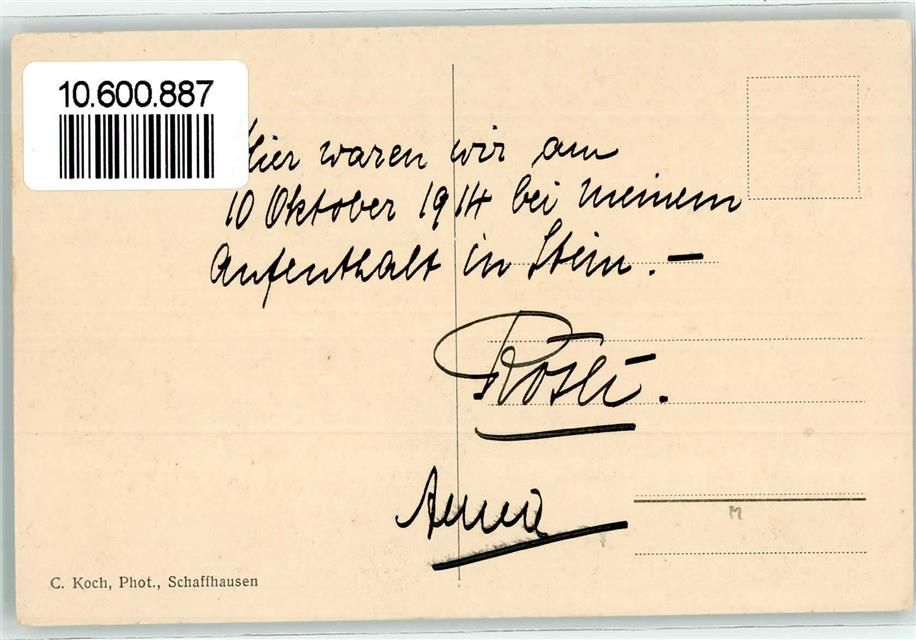 10.600.887
Hier waren wir am
10 Oktober 1914 bei meinem
Aufenthalt in Stein. —
Rösli.
Anna
C. Koch, Phot., Schaffhausen